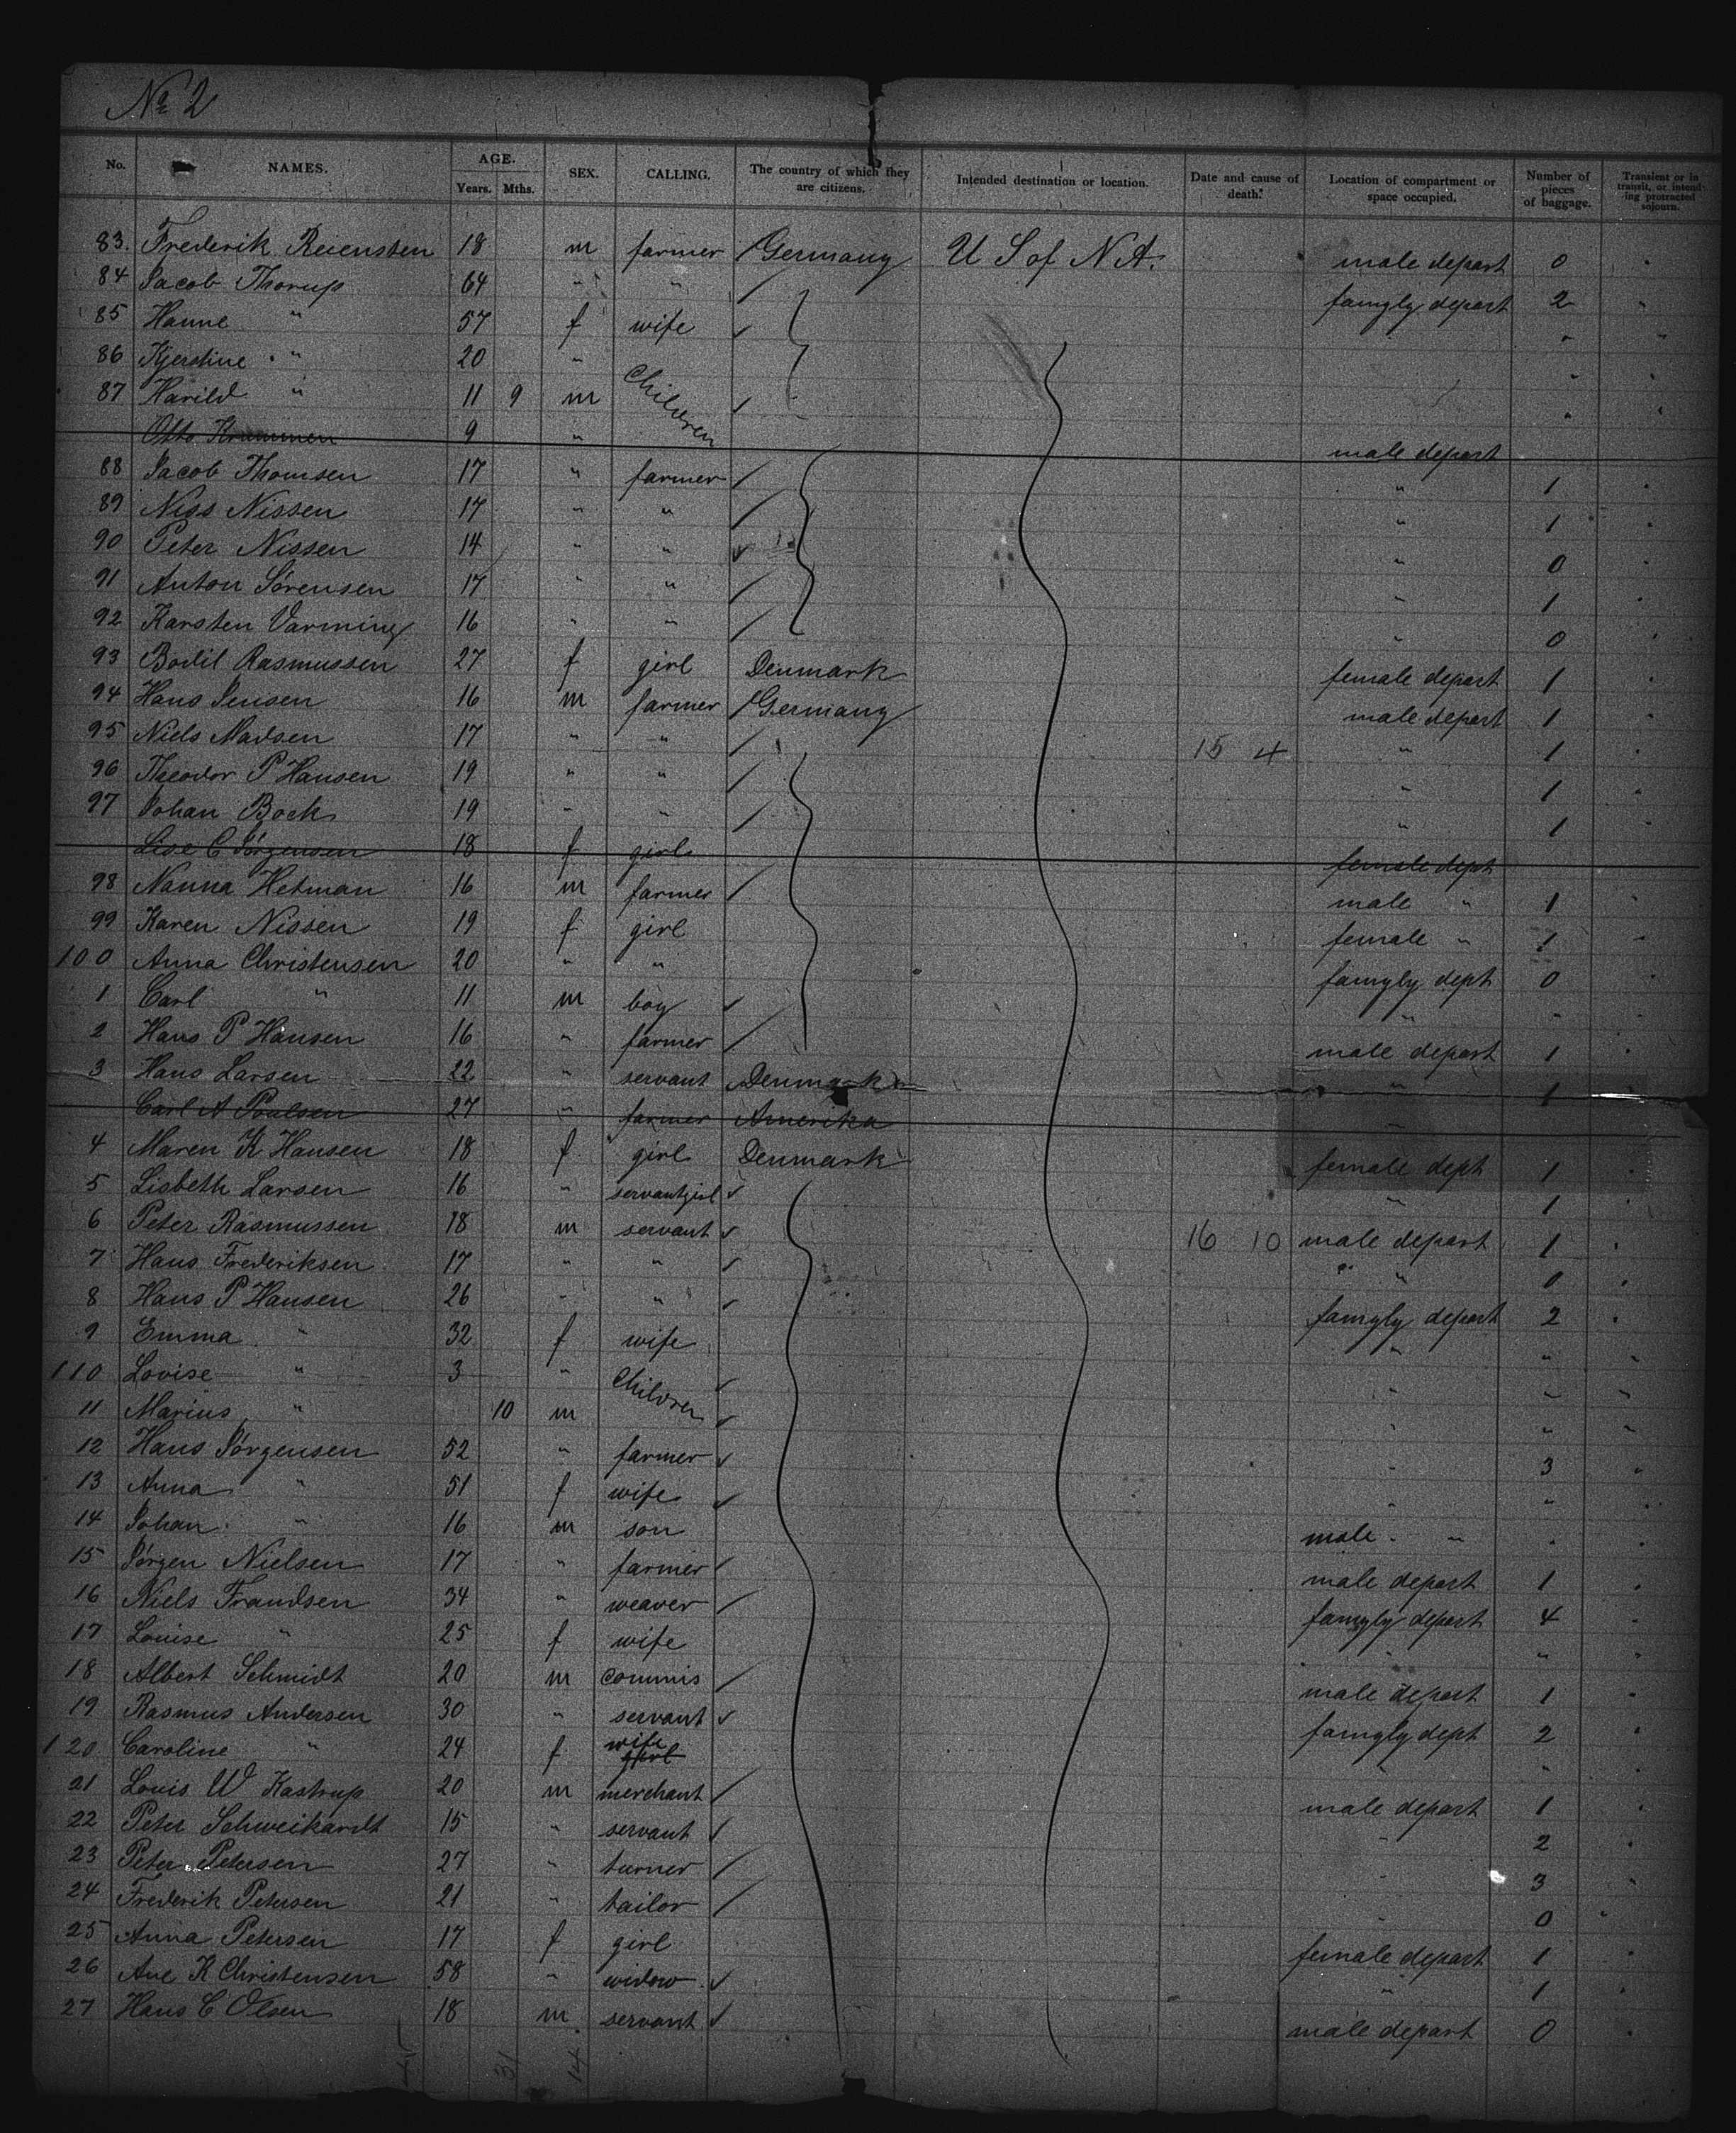 No 2
No. NAMES. AGE. Years. Mths. SEX. CALLING. The country of which they are citizens. Intended destination or location. Date and cause of death. Location of compartment or space occupied. Number of pieces of baggage. Transient or in transit, or intending protracted sojourn.
83. Frederik 18 m farmer Germany U S of N A. male depart 0 "
84 Jacob Thorup 64 " " famyly depart 2 "
85 Hanne " 57 f wife " "
86 Kjerstine " 20 " Children " "
87 Harild " 11 9 m " "
Otto 9 " male depart
88 Jacob Thomsen 17 " farmer " 1 "
89 Niss Nissen 17 " " " 1 "
90 Peter Nissen 14 " " " 0 "
91 Anton Sørensen 17 " " " 1 "
92 Karsten Varming 16 " " " 0 "
93 Bodil Rasmussen 27 f girl Denmark female depart 1 "
94 Hans Jensen 16 m farmer Germany male depart 1 "
95 Niels Madsen 17 " " 15 4 " 1 "
96 Theodor P Hansen 19 " " " 1 "
97 Johan Bock 19 " " " 1 "
Lise C Jørgensen 18 f girl female dept
98 Nanna Hetman 16 m farmer male " 1 "
99 Karen Nissen 19 f girl female " 1 "
100 Anna Christensen 20 " " famyly dept 0 "
1 Carl " 11 m boy " " "
2 Hans P Hansen 16 " farmer male depart 1 "
3 Hans Larsen 22 " servant Denmark " 1
Carl A Poulsen 27 " farmer Amerika "
4 Maren K Hansen 18 f girl Denmark female dept 1 "
5 Lisbeth Larsen 16 " servantgirl " 1 "
6 Peter Rasmussen 18 m servant 16 10 male depart 1 "
7 Hans Frederiksen 17 " " " " 0 "
8 Hans P Hansen 26 " " famyly depart 2 "
9 Emma " 32 f wife " " "
110 Lovise " 3 " Children " " "
11 Marius " 10 m " " "
12 Hans Jørgensen 52 " farmer " 3 "
13 Anna " 51 f wife " " "
14 Johan " 16 m son male " " "
15 Jørgen Nielsen 17 " farmer male depart 1 "
16 Niels Frandsen 34 " weaver famyly depart 4 "
17 Louise " 25 f wife " " "
18 Albert Schmidt 20 m commis male depart 1 "
19 Rasmus Andersen 30 " servant famyly dept 2 "
120 Caroline " 24 f wife girl " " "
21 Louis W Kastrup 20 m merchant male depart 1 "
22 Peter Schweikardt 15 " servant " 2 "
23 Peter Petersen 27 " turner " 3 "
24 Frederik Petersen 21 " tailor " 0 "
25 Anna Petersen 17 f girl female depart 1 "
26 Ane K Christensen 58 " widow " 1 "
27 Hans C Olsen 18 m servant male depart 0 "
31 14